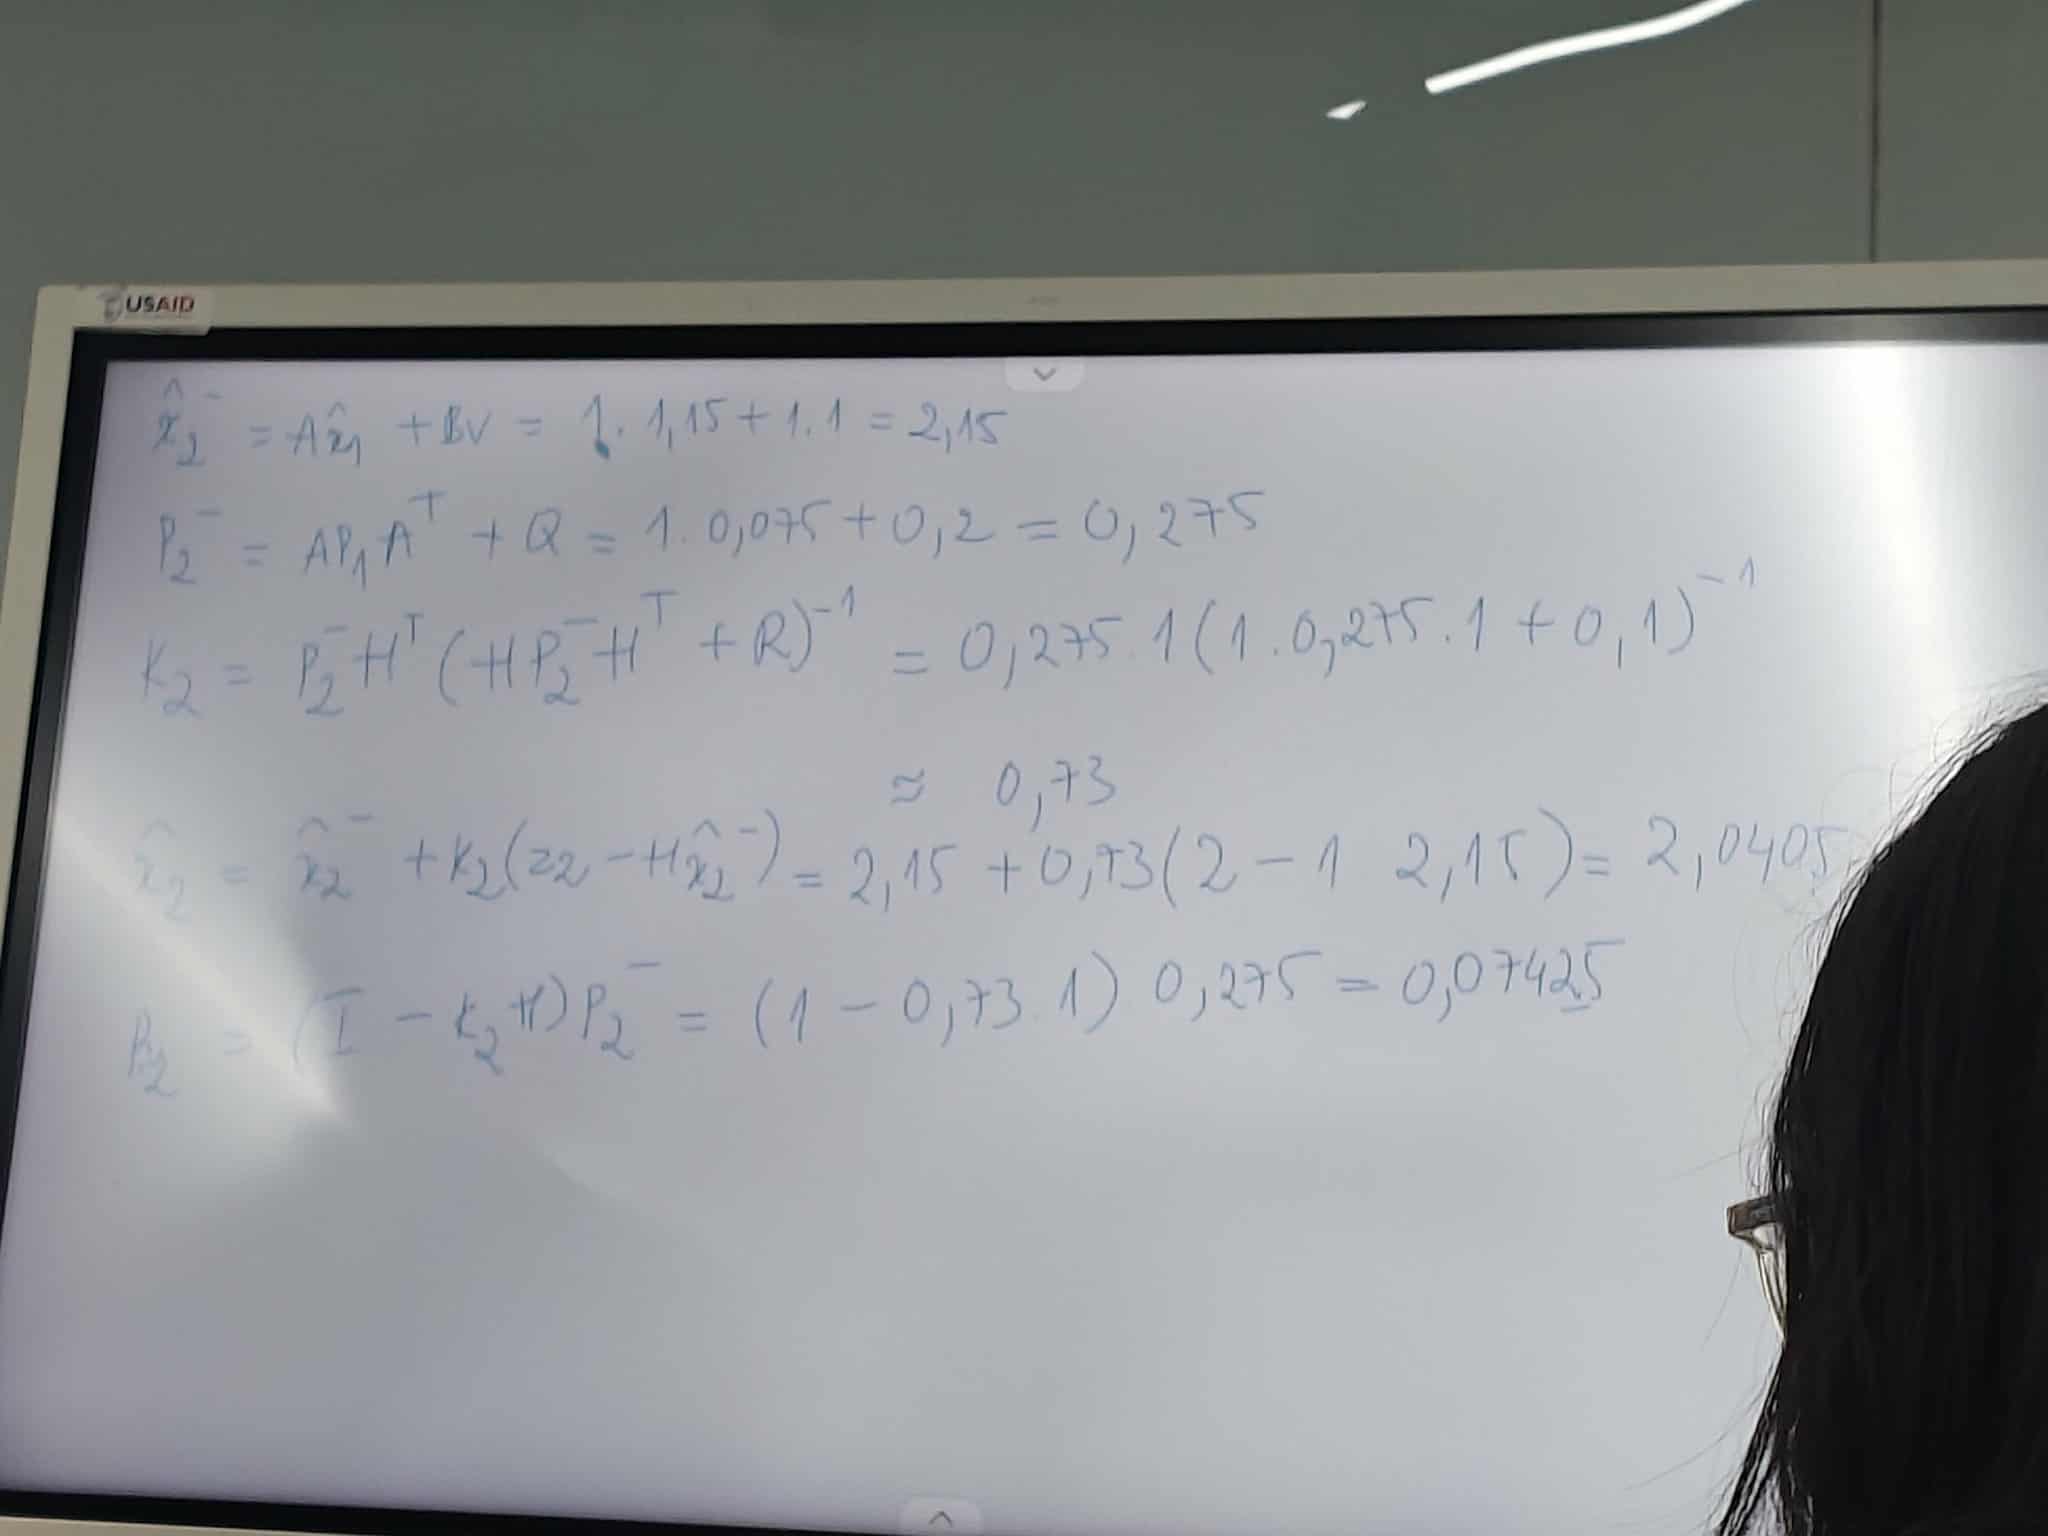 USAID
x̂₂⁻ = Ax̂₁ + BV = 1. 1,15 + 1.1 = 2,15
P₂⁻ = AP₁Aᵀ + Q = 1. 0,075 + 0,2 = 0,275
K₂ = P₂⁻Hᵀ(HP₂⁻Hᵀ + R)⁻¹ = 0,275.1(1.0,275.1 + 0,1)⁻¹
≈ 0,73
x̂₂ = x̂₂⁻ + K₂(z₂ - Hx̂₂⁻) = 2,15 + 0,73(2 - 1 2,15) = 2,0405
P₂ = (I - K₂H)P₂⁻ = (1 - 0,73.1) 0,275 = 0,07425